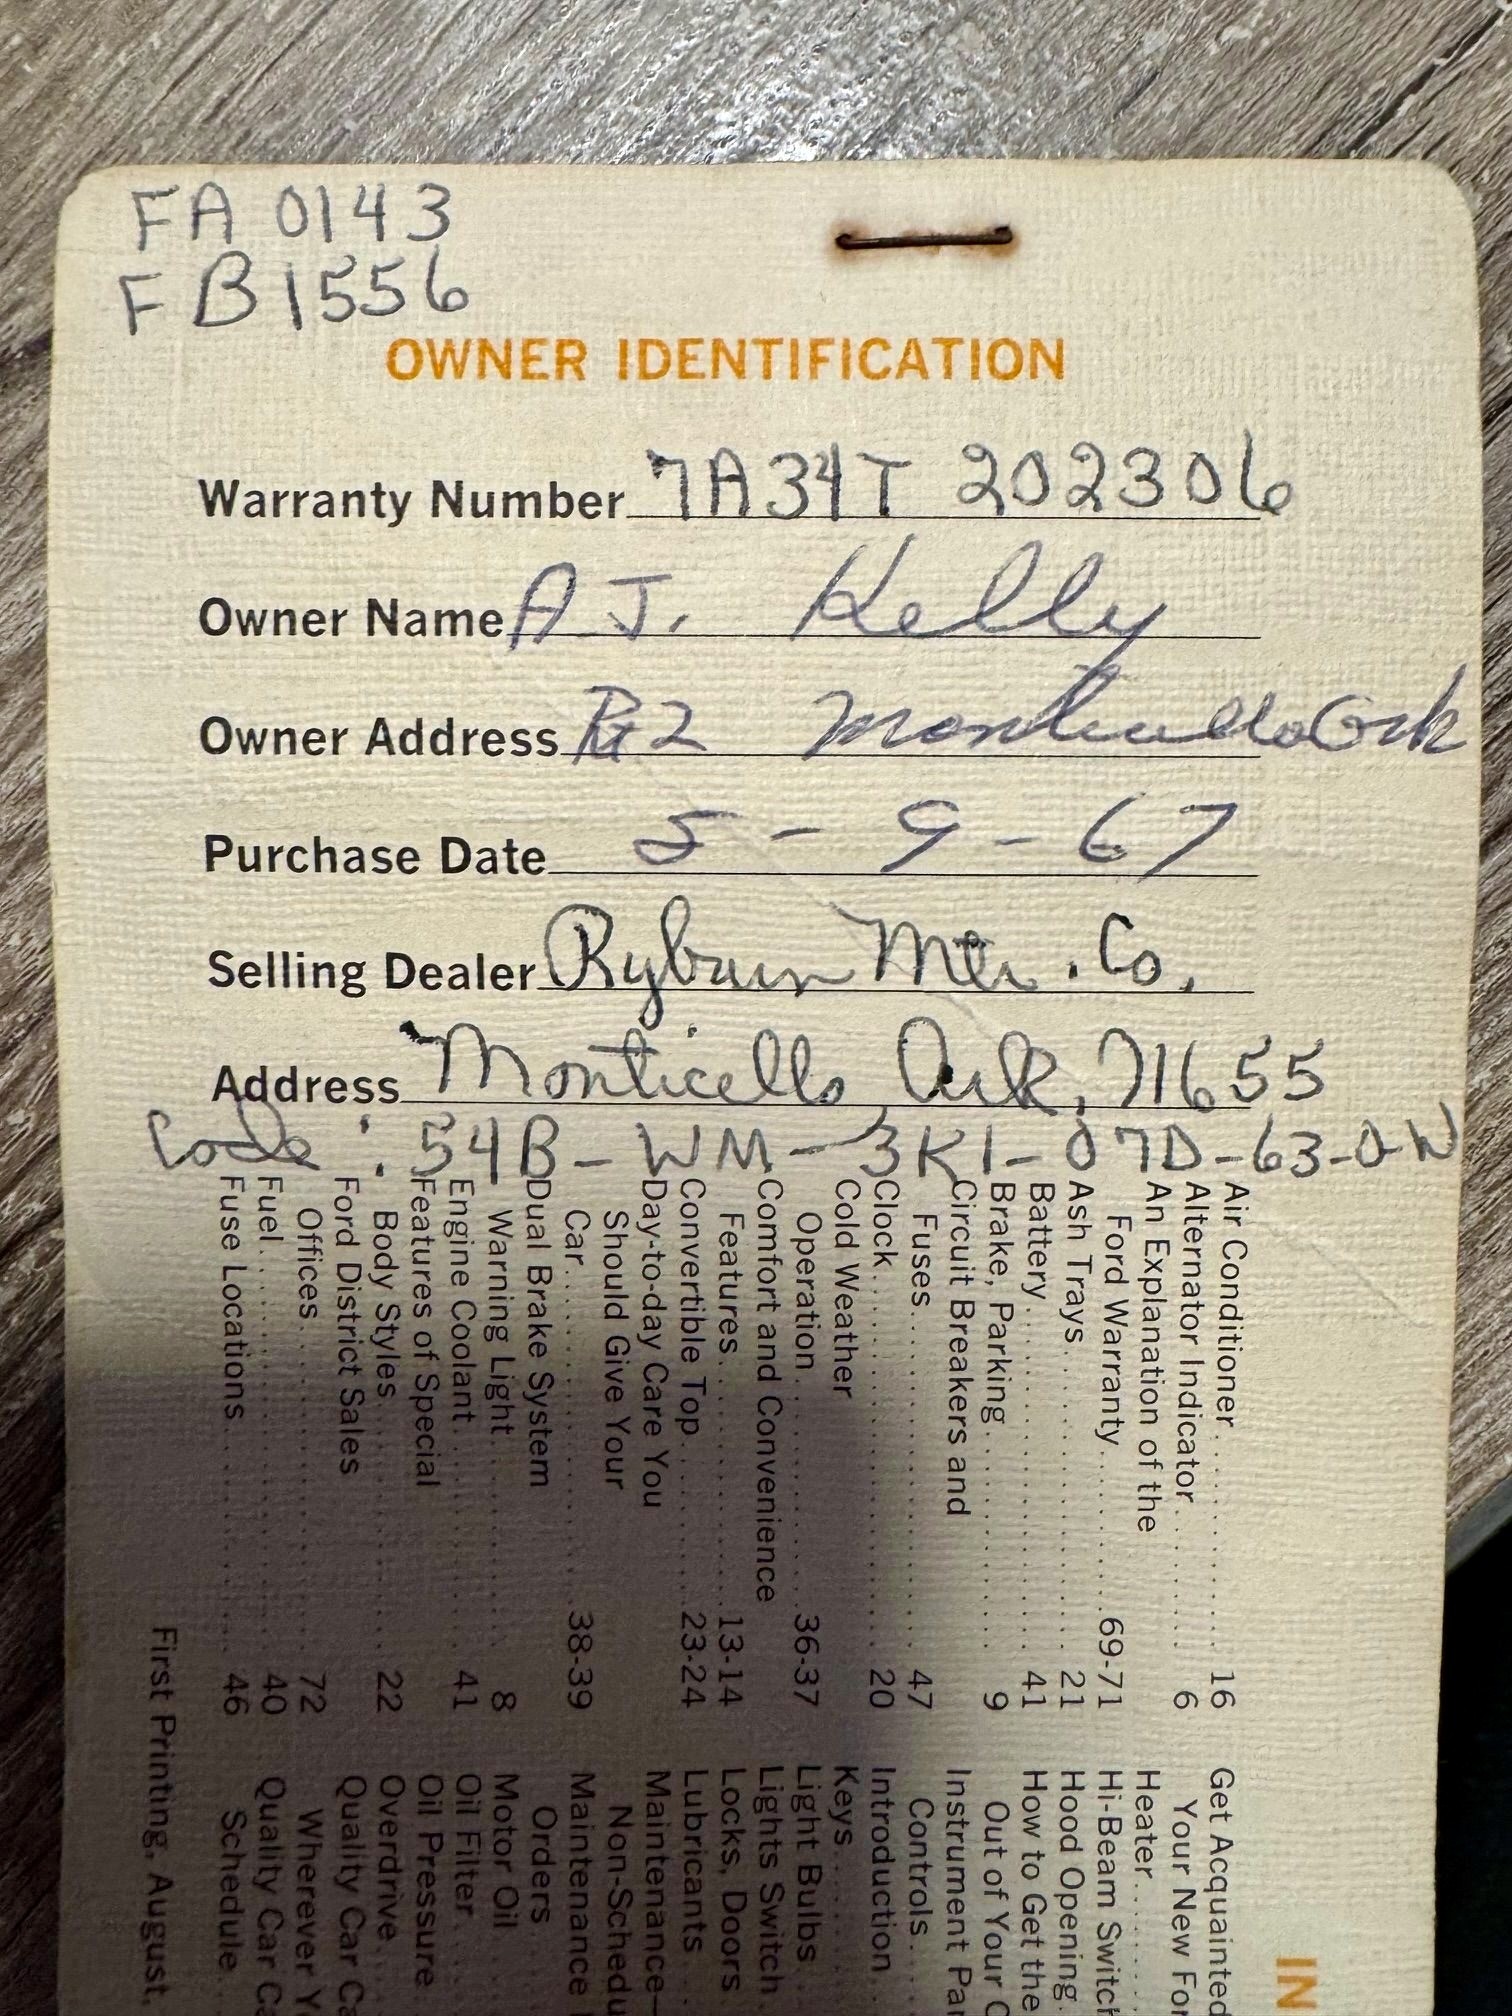 FA 0143
FB1556
OWNER IDENTIFICATION
Warranty Number 7A34T 202306
Owner Name A J. Kelly
Owner Address Rt 2 Monticello Ark
Purchase Date 5-9-67
Selling Dealer Ryburn Mtr. Co.
Address Monticello Ark, 71655
Code: 54B-WM-3K1-07D-63-0W
IN
Air Conditioner 16
Alternator Indicator 6
An Explanation of the
Ford Warranty 69-71
Ash Trays 21
Battery 41
Brake, Parking 9
Circuit Breakers and
Fuses 47
Clock 20
Cold Weather
Operation 36-37
Comfort and Convenience
Features 13-14
Convertible Top 23-24
Day-to-day Care You
Should Give Your
Car 38-39
Dual Brake System
Warning Light 8
Engine Coolant 41
Features of Special
Body Styles 22
Ford District Sales
Offices 72
Fuel 40
Fuse Locations 46
Get Acquainted
Your New For
Heater
Hi-Beam Switch
Hood Opening
How to Get the
Out of Your C
Instrument Pa
Controls
Introduction
Keys
Light Bulbs
Lights Switch
Locks, Doors
Lubricants
Maintenance—
Non-Schedu
Maintenance
Orders
Motor Oil
Oil Filter
Oil Pressure
Overdrive
Quality Car Ca
Wherever Y
Quality Car Ca
Schedule
First Printing, August,